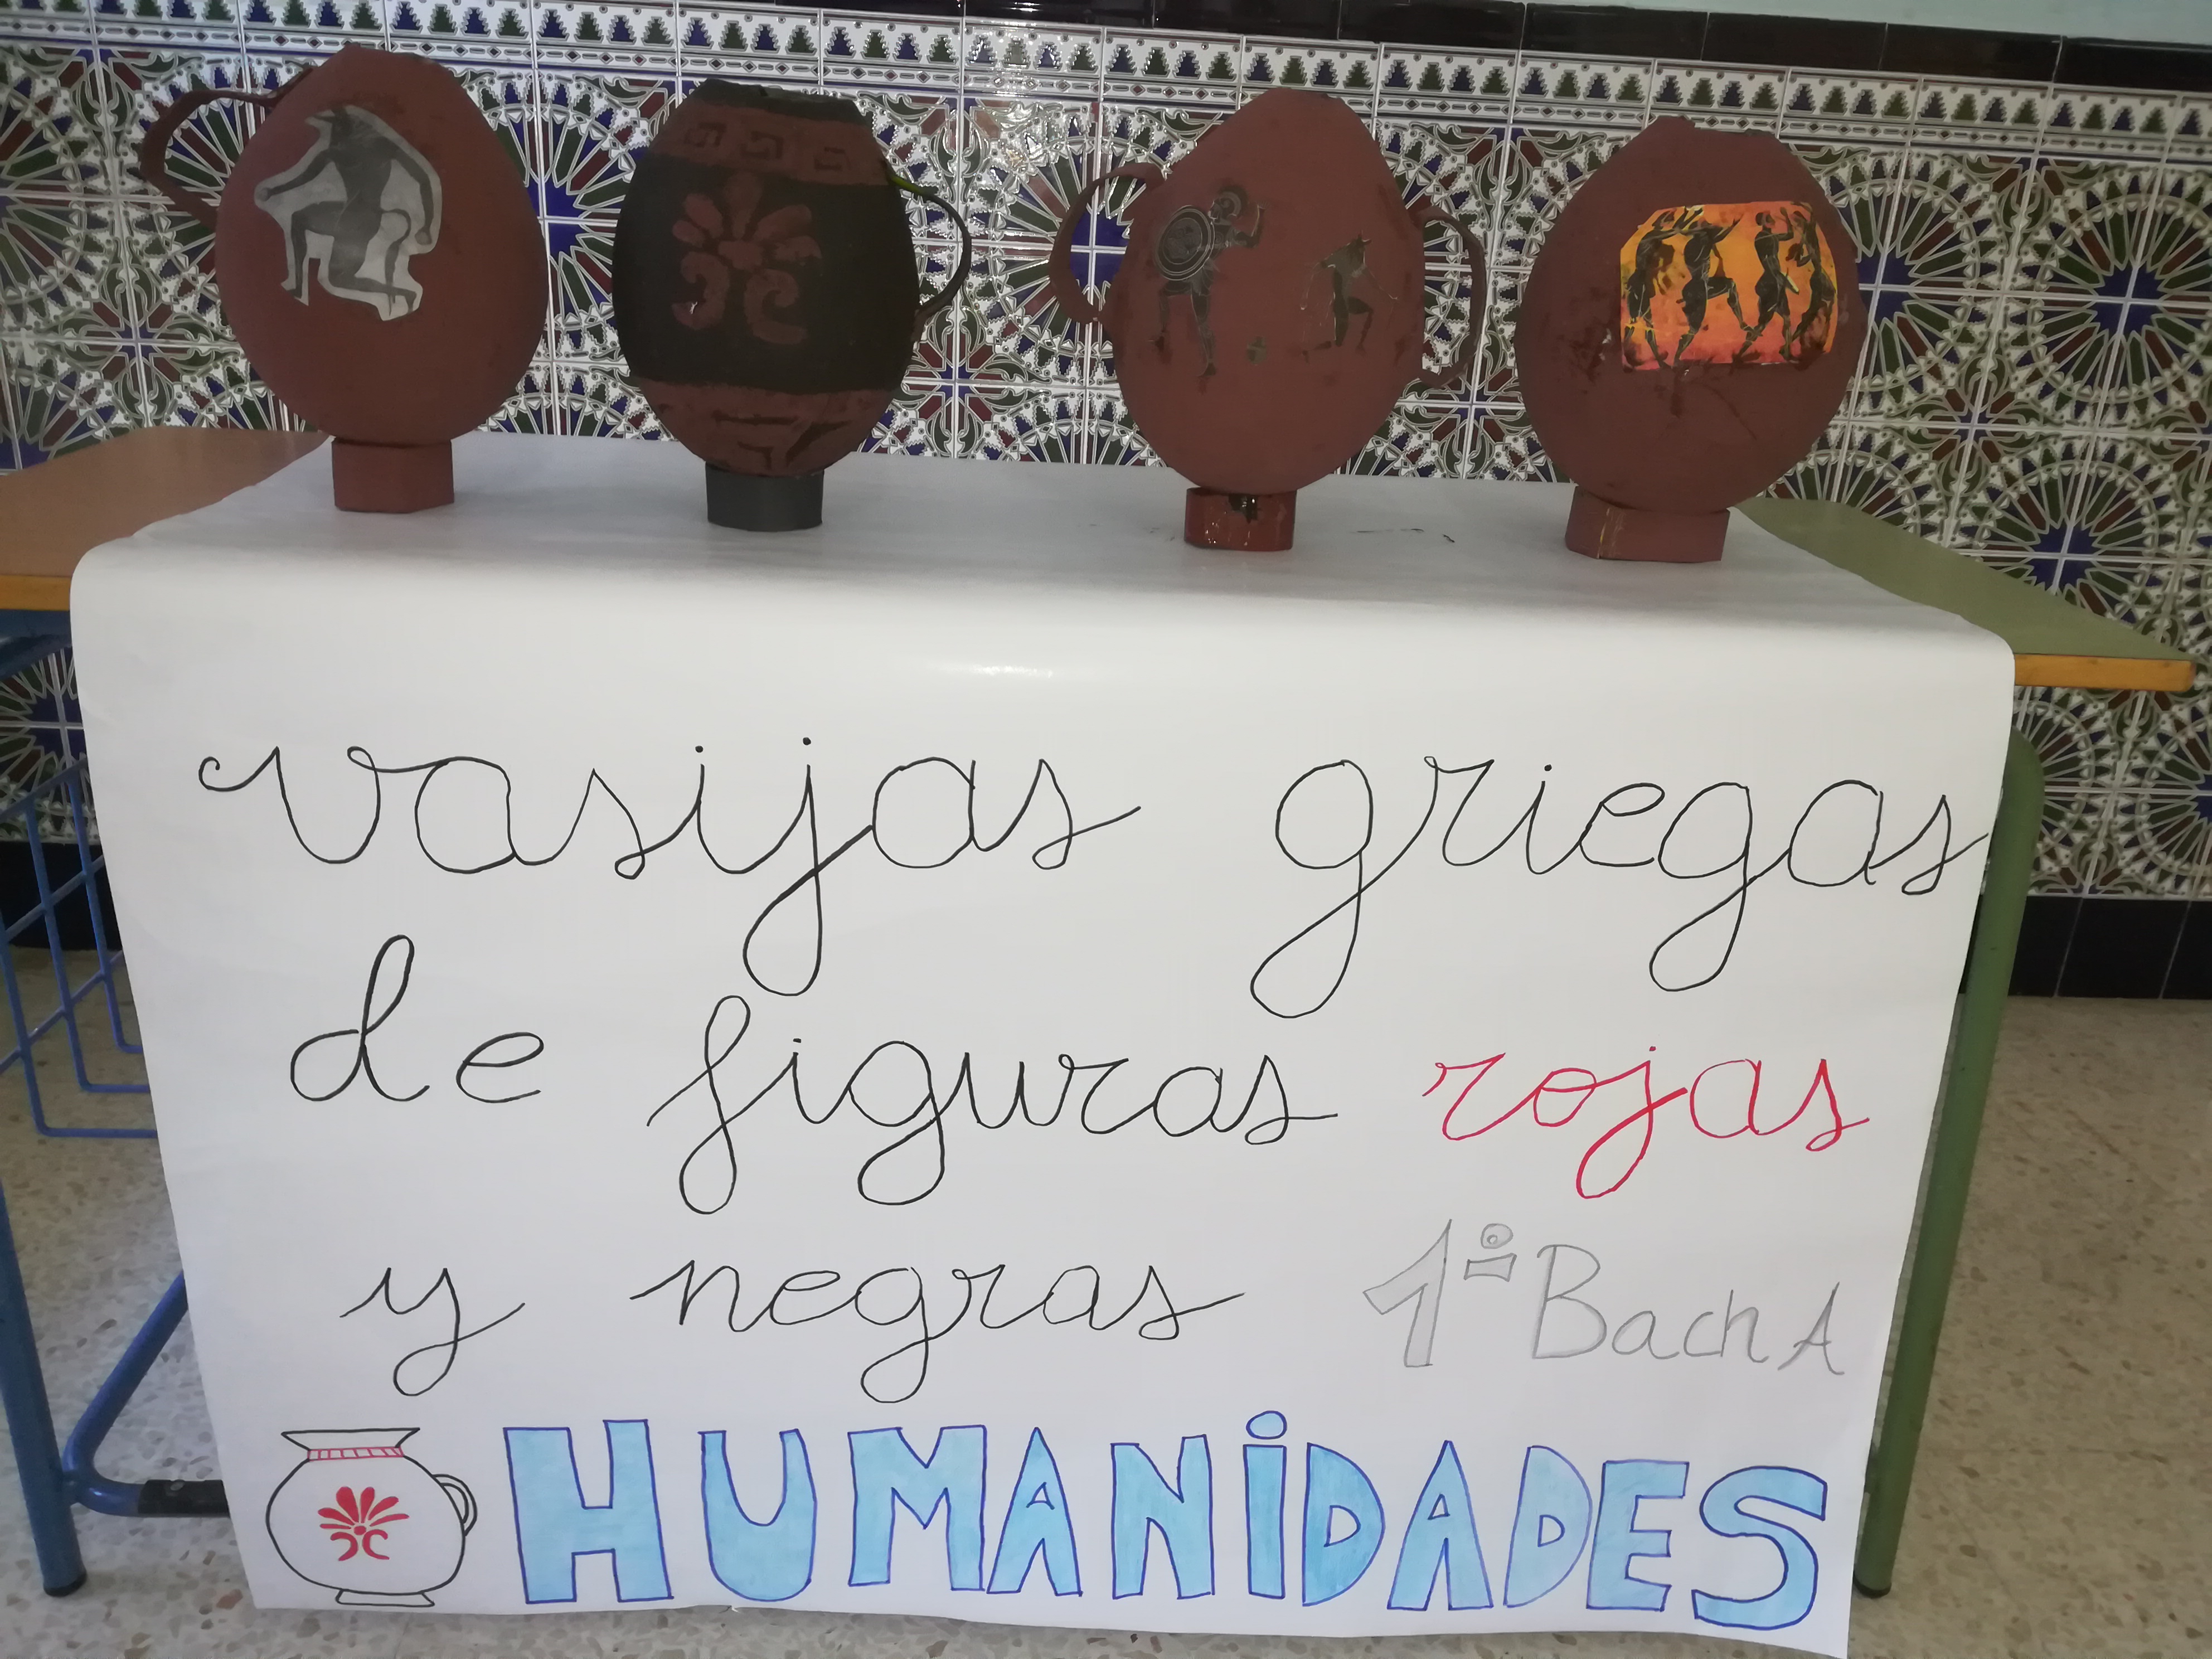 vasijas griegas
de figuras rojas
y negras 1º Bach A
HUMANiDADES